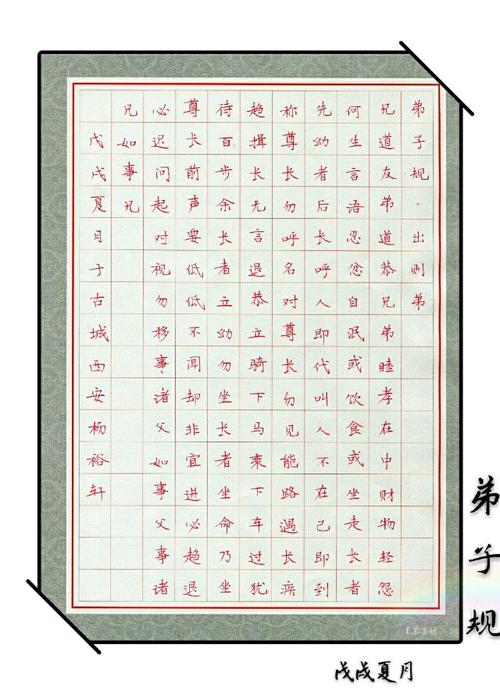 弟子规·出则弟
兄道友弟道恭兄弟睦孝在中财物轻怨
何生言语忍忿自泯或饮食或坐走长者
先幼者后长呼人即代叫人不在己即到
称尊长勿呼名对尊长勿见能路遇长疾
趋揖长无言退恭立骑下马乘下车过犹
待百步余长者立幼勿坐长者坐命乃坐
尊长前声要低低不闻却非宜进必趋退
必迟问起对视勿移事诸父如事父事诸
兄如事兄
戊戌夏月于古城西安杨裕轩
弟子规
戊戌夏月